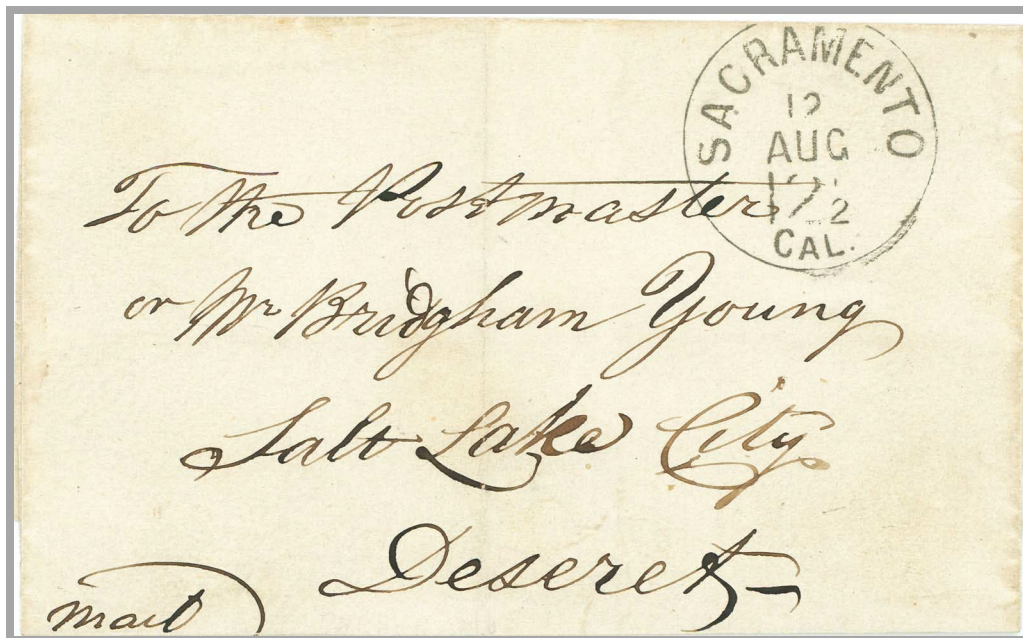 SACRAMENTO
12
AUG
CAL.
To the Postmaster
or Mr Bridgham Young
Salt Lake City
Deseret
mail